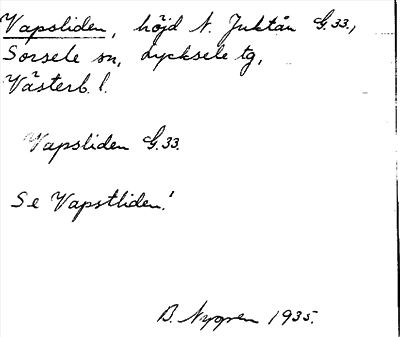 Vapsliden, höjd N. Juktån G.33.,
Sorsele sn, Lycksele tg,
Västerb. l.
Vapsliden G.33.
Se Vapstliden!
B. Nygren 1935.